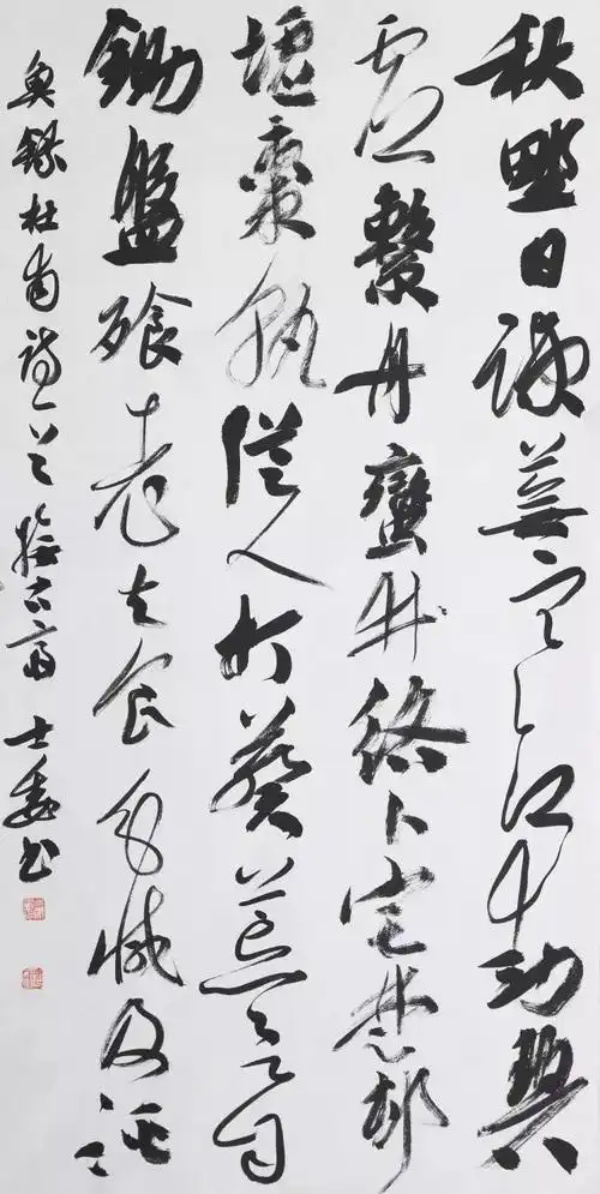 秋野日疎蕪寒江動碧
虛繫舟蠻井絡卜宅楚邨
墟棗熟從人打葵荒欲自
鋤盤飧老夫食分減及溪
魚 錄杜甫詩一首 士 書